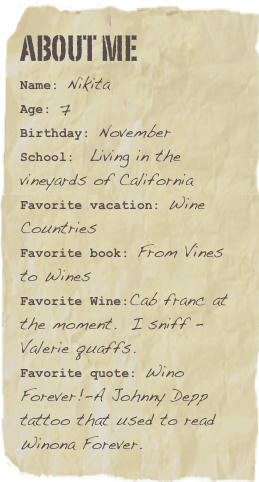 ABOUT ME
Name: Nikita
Age: 7
Birthday: November
School: Living in the
vineyards of California
Favorite vacation: Wine
Countries
Favorite book: From Vines
to Wines
Favorite Wine:Cab franc at
the moment. I sniff -
Valerie quaffs.
Favorite quote: Wino
Forever!-A Johnny Depp
tattoo that used to read
Winona Forever.